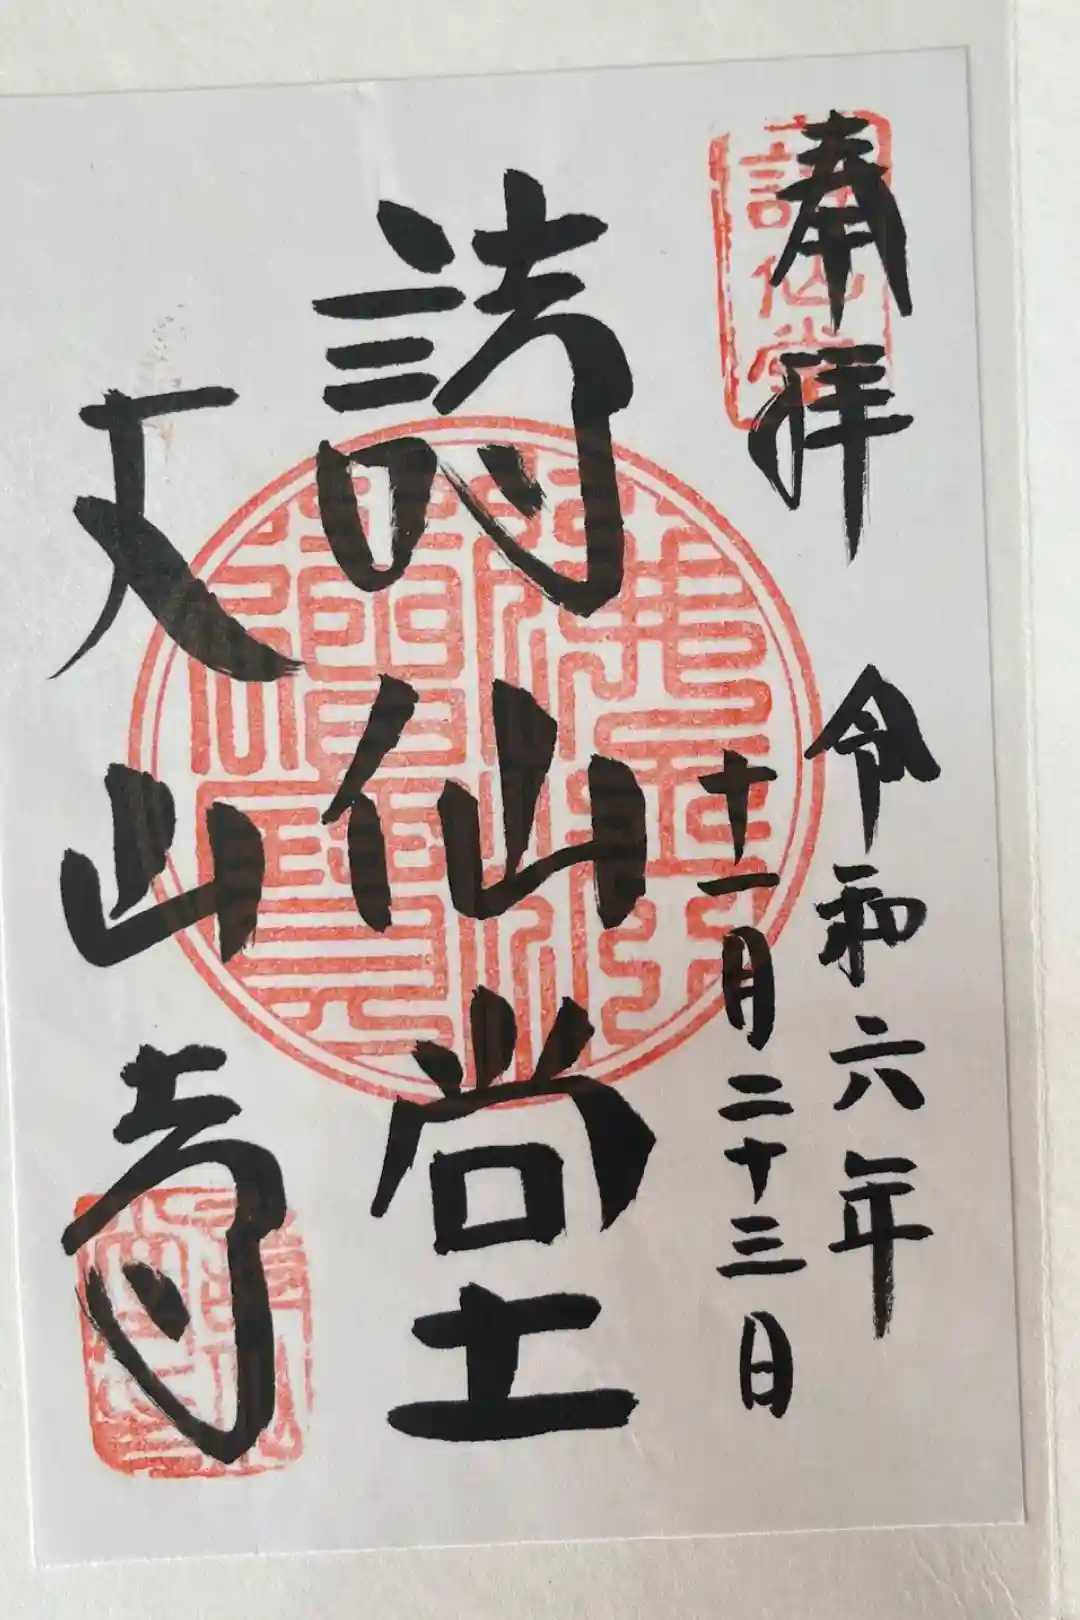 奉拝
詩仙堂
令和六年
十一月二十三日
詩仙堂
丈山寺